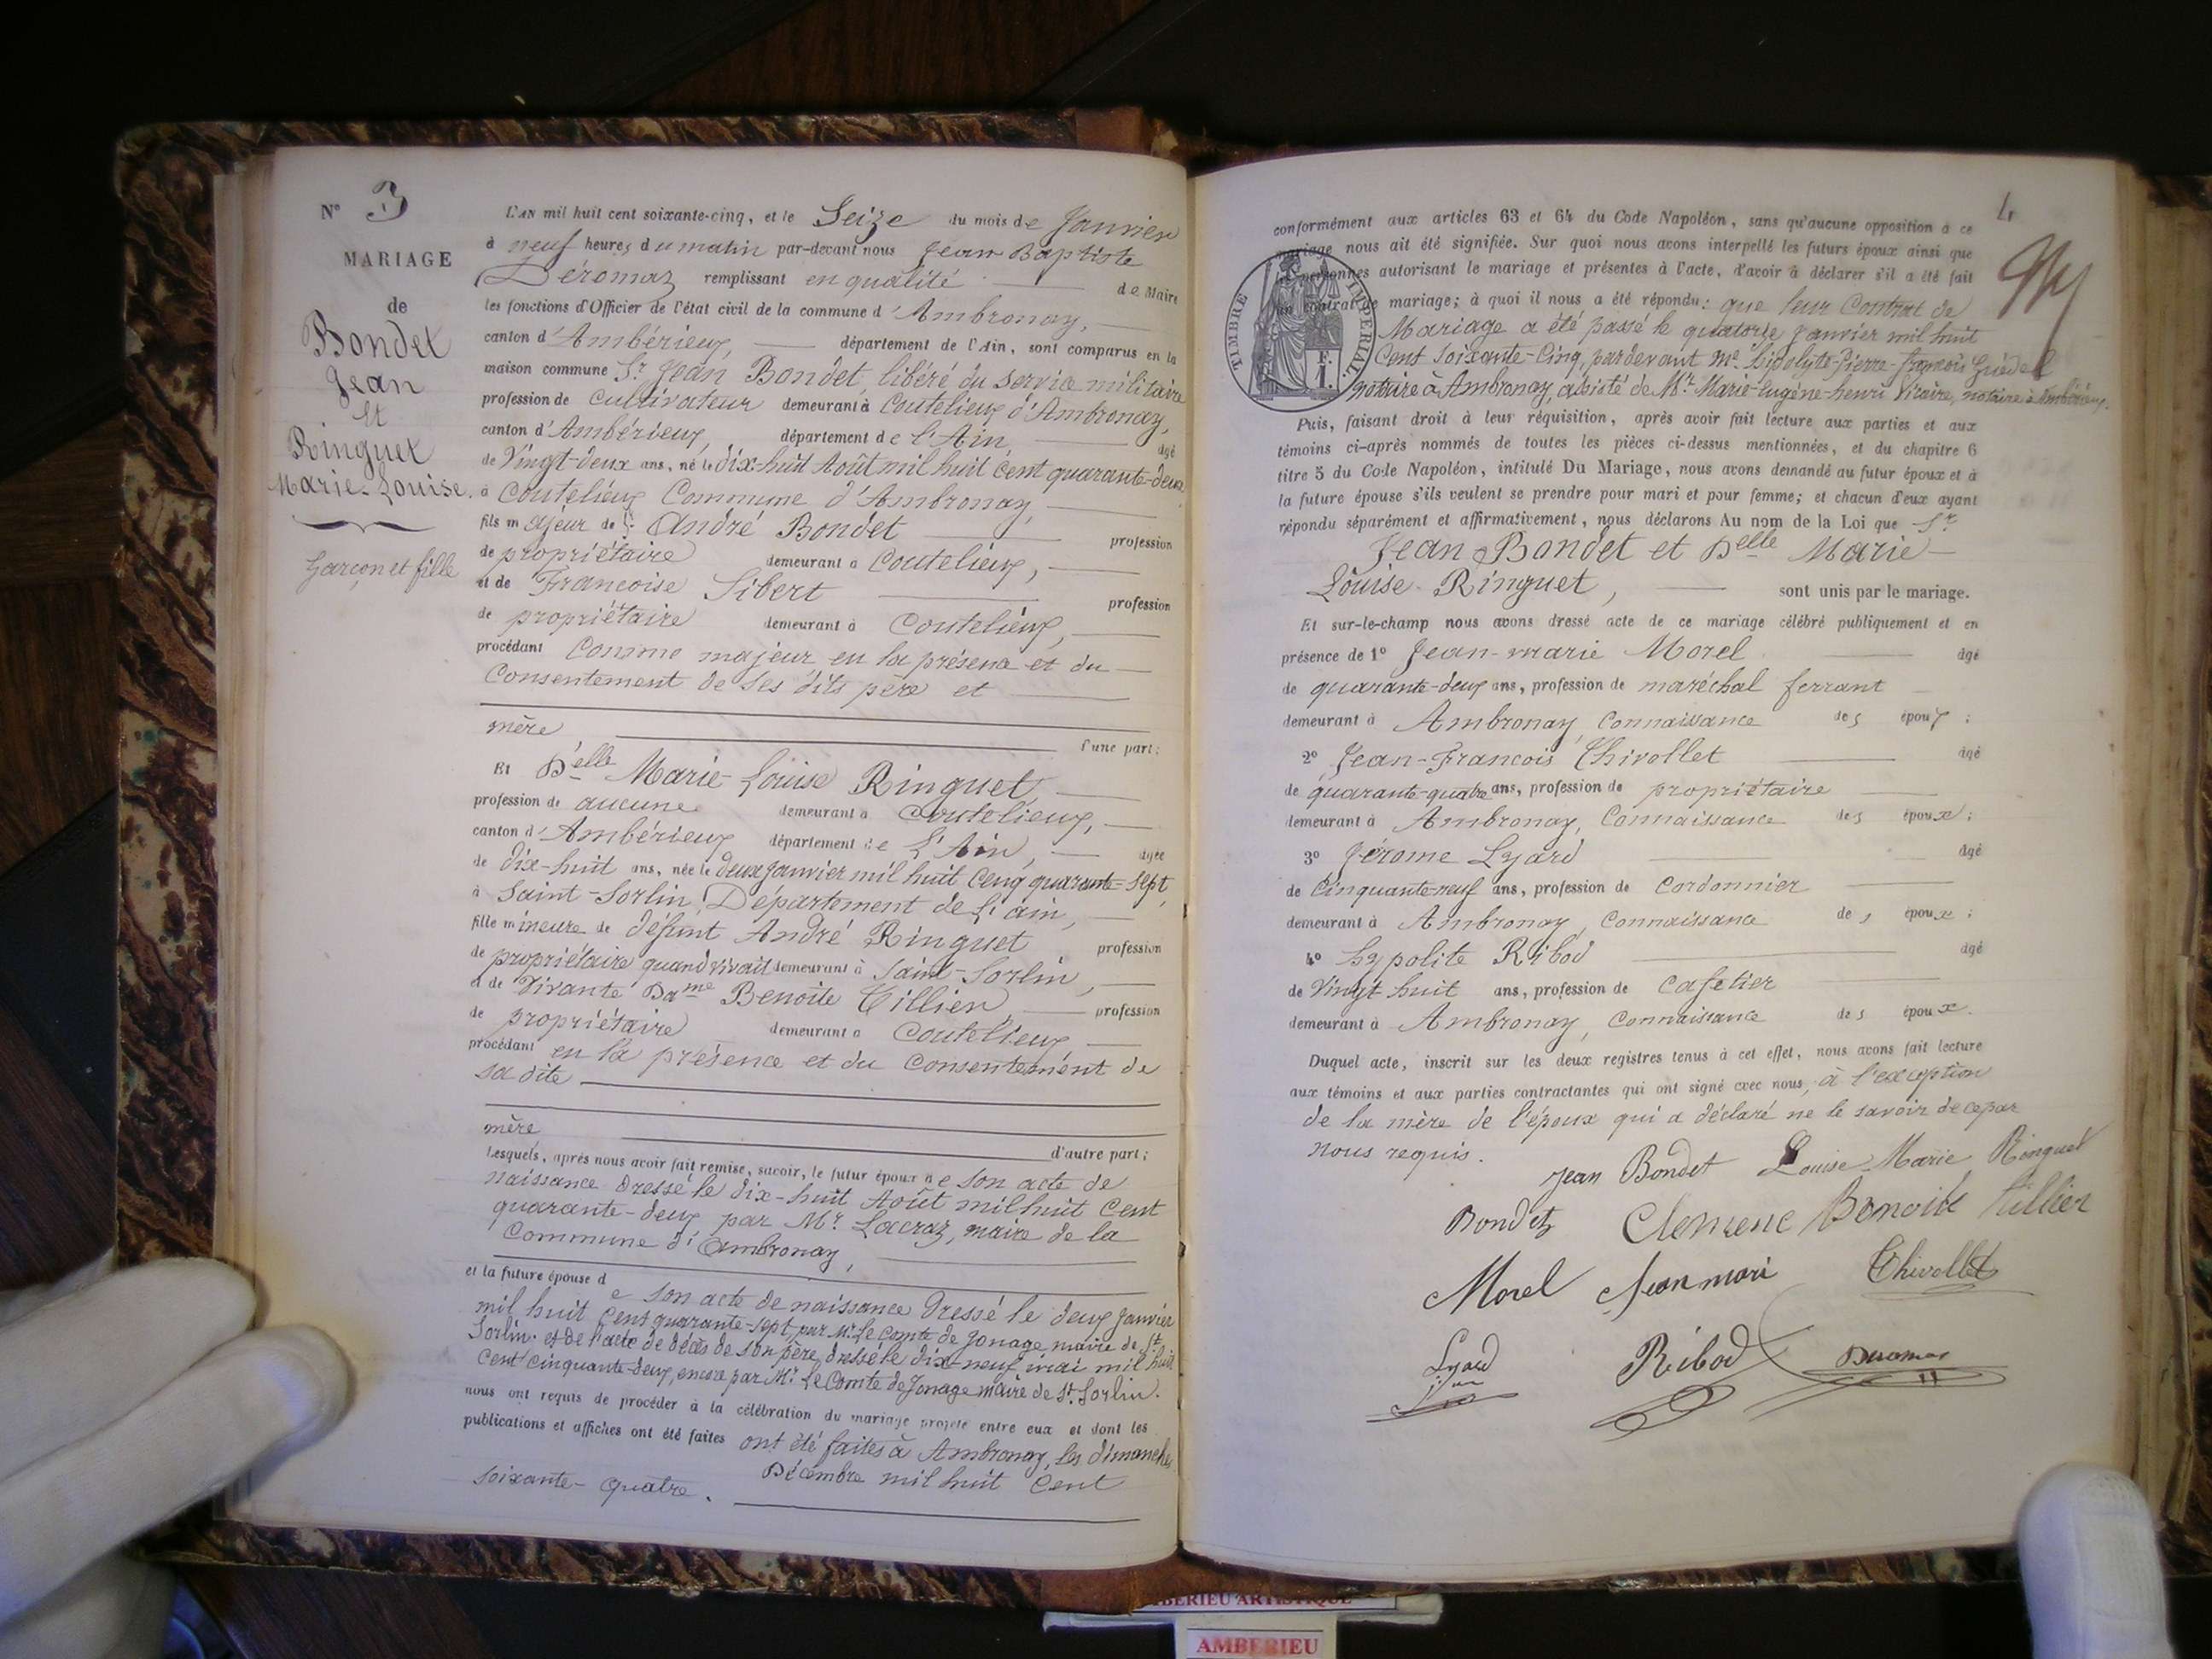 N° 3
MARIAGE
de
Bondet
Jean
Et
Ringuet
Marie-Louise.
Garçon et fille
L'AN mil huit cent soixante-cinq, et le Seize du mois de Janvier
à neuf heures du matin par-devant nous Jean Baptiste
Déromaz remplissant en qualité de Maire
les fonctions d'Officier de l'état civil de la commune d'Ambronay,
canton d'Ambérieux, département de l'Ain, sont comparus en la
maison commune Sr Jean Bondet, libéré du service militaire
profession de cultivateur demeurant à Coutelieux d'Ambronay,
canton d'Ambérieux, département de l'Ain, âgé
de Vingt-deux ans, né le dix-huit Août mil huit cent quarante-deux
à Coutelieux Commune d'Ambronay,
fils majeur de Sr André Bondet profession
de propriétaire demeurant à Coutelieux,
et de Françoise Sibert profession
de propriétaire demeurant à Coutelieux,
procédant Comme majeur en la présence et du
Consentement de ses dits père et
mère
d'une part;
Et Delle Marie-Louise Ringuet
profession de aucune demeurant à Coutelieux,
canton d'Ambérieux département de l'Ain, âgée
de dix-huit ans, née le deux Janvier mil huit Cent quarante-sept,
à Saint-Sorlin, Département de l'ain,
fille mineure de défunt André Ringuet profession
de propriétaire quand vivait demeurant à Saint-Sorlin,
et de Vivante Dame Benoite Tillier, profession
de propriétaire demeurant à Coutelieux
procédant en la présence et du Consentement de
sa dite
mère
d'autre part;
Lesquels, après nous avoir fait remise, savoir, le futur époux de son acte de
naissance dressé le dix-huit Août mil huit Cent
quarante-deux par Mr Lacraz, maire de la
Commune d'Ambronay,
et la future épouse de son acte de naissance dressé le deux Janvier
mil huit Cent quarante-sept, par Mr le Comte de Jonage, maire de St
Sorlin. et de l'acte de décès de son père, dressé le dix-neuf mai mil huit
Cent cinquante-deux, encore par Mr Le Comte de Jonage maire de St. Sorlin.
nous ont requis de procéder à la célébration du mariage projeté entre eux et dont les
publications et affiches ont été faites ont été faites à Ambronay, les dimanches
Décembre mil huit Cent
soixante-quatre.
4
conformément aux articles 63 et 64 du Code Napoléon, sans qu'aucune opposition à ce
mariage nous ait été signifiée. Sur quoi nous avons interpellé les futurs époux ainsi que
les personnes autorisant le mariage et présentes à l'acte, d'avoir à déclarer s'il a été fait
un contrat de mariage; à quoi il nous a été répondu: que leur Contrat de
Mariage a été passé le quatorze Janvier mil huit
Cent Soixante-Cinq, pardevant Me hipolyte-Pierre-françois Guédel
notaire à Ambronay, assisté de Mr Marie-Eugène-henri Viraire, notaire à Ambérieux.
TIMBRE IMPERIAL
Puis, faisant droit à leur réquisition, après avoir fait lecture aux parties et aux
témoins ci-après nommés de toutes les pièces ci-dessus mentionnées, et du chapitre 6
titre 5 du Code Napoléon, intitulé Du Mariage, nous avons demandé au futur époux et à
la future épouse s'ils veulent se prendre pour mari et pour femme; et chacun d'eux ayant
répondu séparément et affirmativement, nous déclarons Au nom de la Loi que Sr
Jean Bondet et Delle Marie
Louise Ringuet, sont unis par le mariage.
Et sur-le-champ nous avons dressé acte de ce mariage célébré publiquement et en
présence de 1° Jean-marie Morel âgé
de quarante-deux ans, profession de maréchal ferrant
demeurant à Ambronay, Connaissance des époux;
2° Jean-François Thivollet âgé
de quarante-quatre ans, profession de propriétaire
demeurant à Ambronay, Connaissance des époux;
3° Jérome Lyard âgé
de Cinquante-neuf ans, profession de Cordonnier
demeurant à Ambronay, Connaissance des époux;
4° hypolite Ribod âgé
de Vingt huit ans, profession de Cafetier
demeurant à Ambronay, Connaissance des époux.
Duquel acte, inscrit sur les deux registres tenus à cet effet, nous avons fait lecture
aux témoins et aux parties contractantes qui ont signé avec nous, à l'exception
de la mère de l'époux qui a déclaré ne le savoir de ce par
nous requis.
Jean Bondet Louise Marie Ringuet
Bondet Benoite Tillier
Morel Jean mari Thivollet
Lyard Ribod Deromaz
AMBERIEU ARTISTIQUE
AMBERIEU